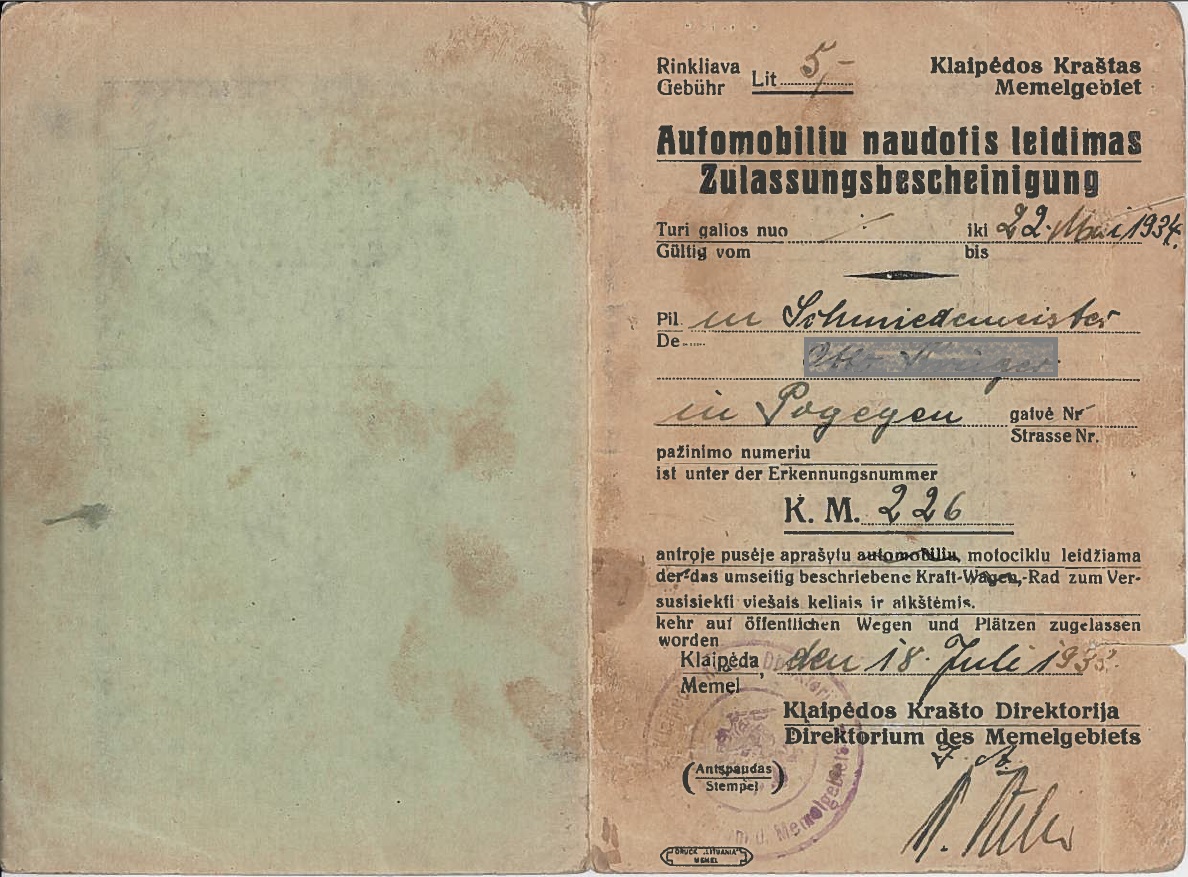 Rinkliava
Gebühr Lit 5,-
Klaipėdos Kraštas
Memelgebiet
Automobiliu naudotis leidimas
Zulassungsbescheinigung
Turi galios nuo iki 22. Mai 1934.
Gültig vom bis
Pil. in Schmiedemeister
De
in Pogegen gatvė Nr
Strasse Nr.
pažinimo numeriu
ist unter der Erkennungsnummer
K. M. 226
antroje pusėje aprašytu automobiliu, motociklu leidžiama
der das umseitig beschriebene Kraft-Wagen,-Rad zum Ver-
susisiekti viešais keliais ir aikštėmis.
kehr auf öffentlichen Wegen und Plätzen zugelassen
worden
Klaipėda, den 18. Juli 1933.
Memel
Klaipėdos Krašto Direktorija
Direktorium des Memelgebiets
(Antspaudas
Stempel)
d. Memelgebiets
DRUCK „LITUANIA"
MEMEL